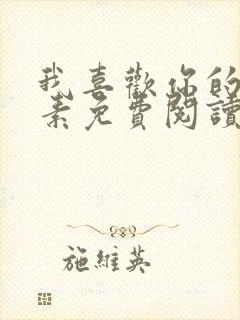 我喜歡你的
素免費閱讀
施維英